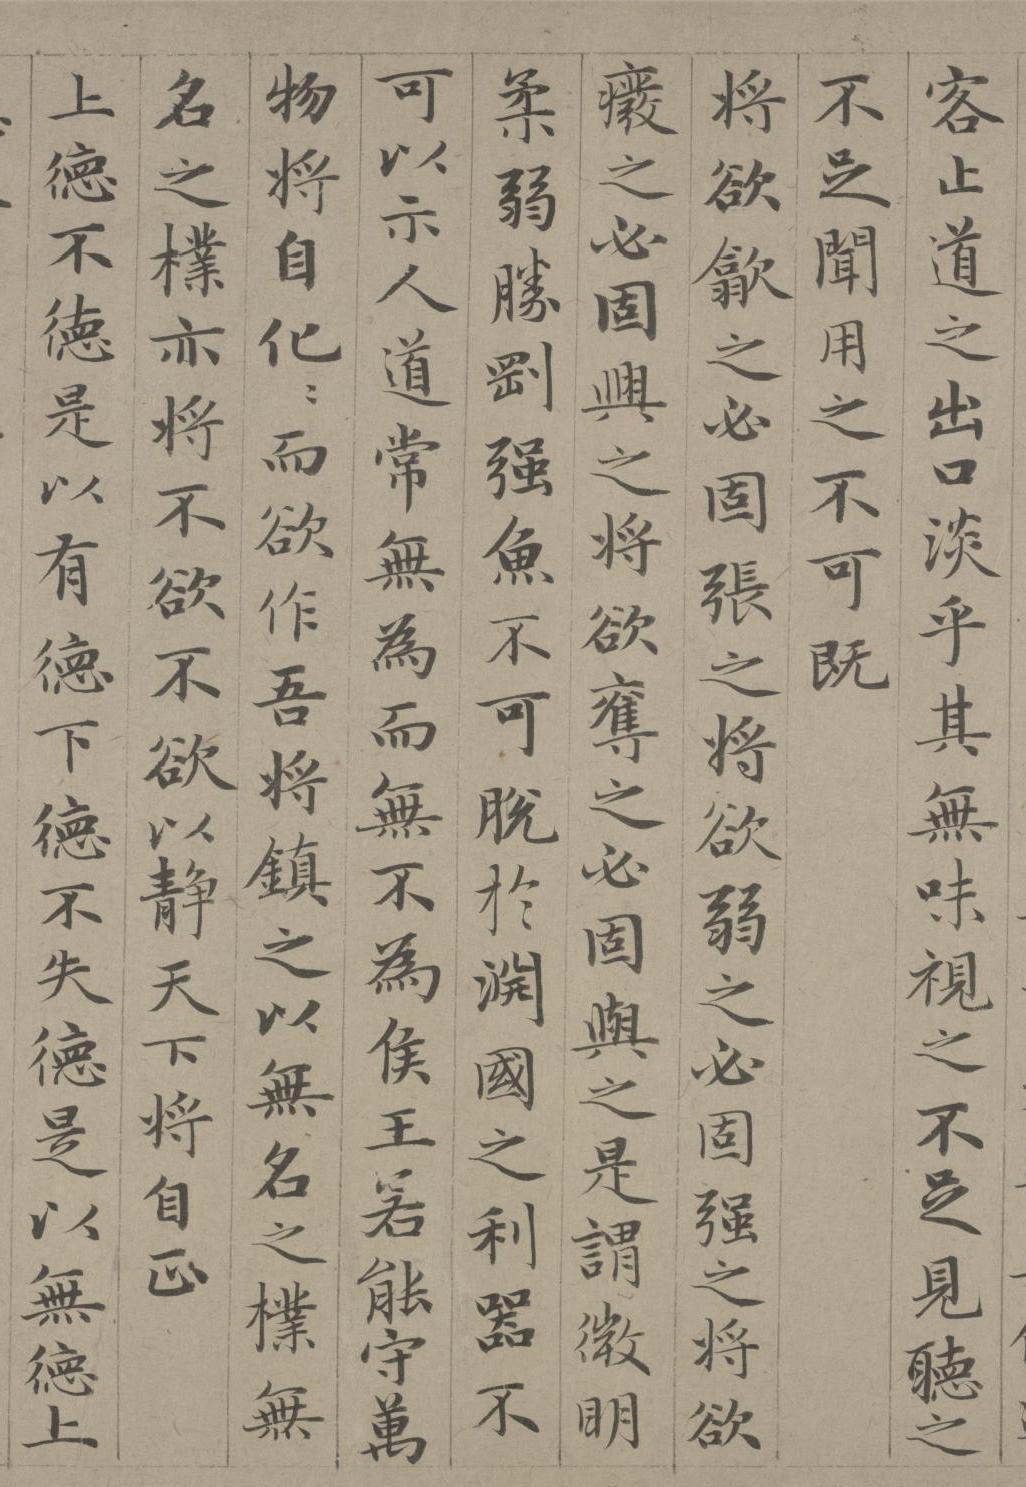 客止道之出口淡乎其無味視之不足見聽之
不足聞用之不可既
將欲歙之必固張之將欲弱之必固强之將欲
癈之必固興之將欲奪之必固與之是謂微明
柔弱勝剛强魚不可脫於淵國之利器不
可以示人道常無為而無不為侯王若能守萬
物將自化〻而欲作吾將鎮之以無名之樸無
名之樸亦將不欲不欲以靜天下將自正
上德不德是以有德下德不失德是以無德上